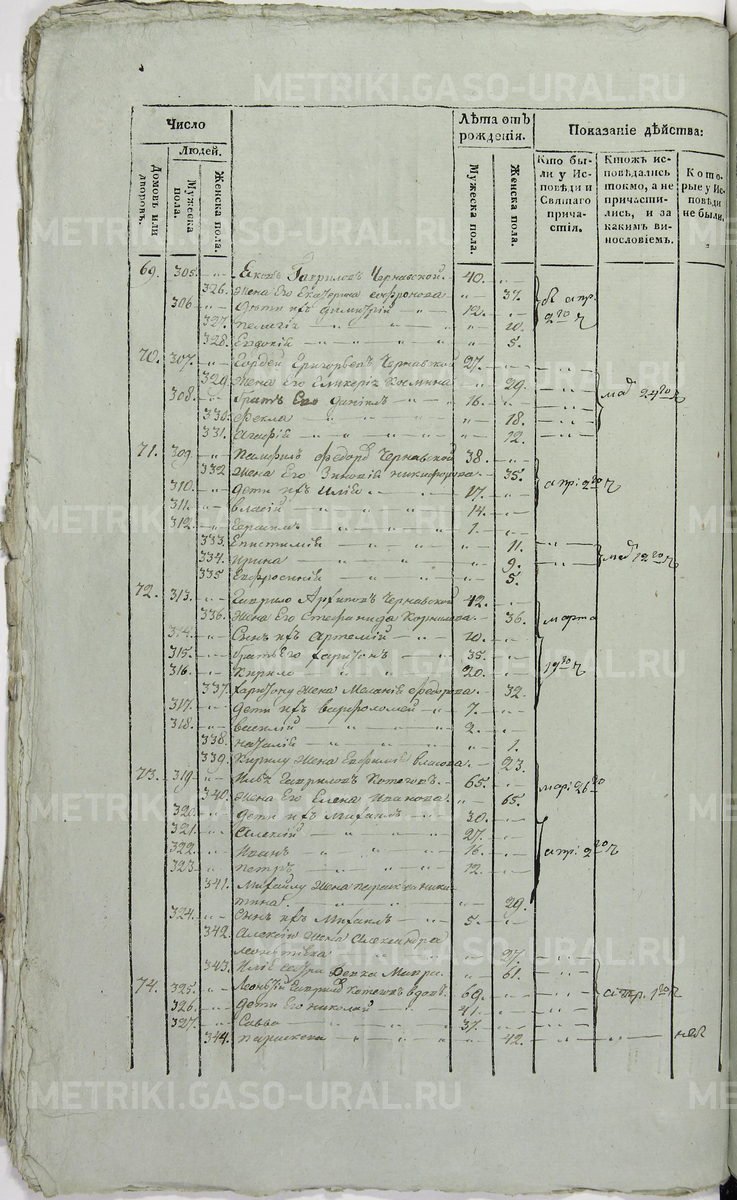 METRIKI.GASO-URAL.RU
Число
Людей.
Домовъ или дворовъ.
Мужеска пола.
Женска пола.
Лѣта отъ рожденія.
Мужеска пола.
Женска пола.
Показаніе дѣйства:
Кто были у Исповѣди и Святаго причастія.
Ктожъ исповѣдались токмо, а не причастились, и за какимъ винословіемъ.
Которые у Исповѣди не были.
69. 305. Гавриловъ Чернавской 40.
326. жена Его Екатерина 37.
306 дѣти ихъ димитрій 12.
327. пелагія 10.
328. Евдокія 5.
70. 307. Гордей Григорьевъ Чернавской 27.
329. жена Его Гликерія Космина 29.
308. братъ Его Даніилъ 16.
330. Фекла 18.
331. 12.
мад 24го ч
71. 309. Памфилъ Федоровъ Чернавской 38.
332 жена Его Зиновія никифорова 35.
апр: 2го ч
310. дѣти ихъ Илія 17.
311. власій 14.
312. Герасимъ 1.
333. Епистимія 11.
334. Ирина 9.
335 Евфросинія 5.
72. 313. Гаврило Архиповъ Чернавской 42.
336. жена Его Стефанида Корнилова 36.
марта 19го ч
314. Сынъ ихъ Артемій 10.
315. братъ Его харитонъ 35.
316. Кирило 20.
337. харитону жена Меланія Федорова 32.
317. дѣти ихъ варфоломей 7.
318. василій 2.
338. наталія 1.
339. Кирилу жена власова 23.
73. 319. Илья Гавриловъ Котеговъ 65.
340. жена Его Елена Иванова 65.
320. дѣти ихъ Михаилъ 30.
321. Алексій 27.
322. Иванъ 16.
323. петръ 12.
апр. 2го ч
341. Михайлу жена параскева никитина 29.
324. Сынъ ихъ Михаилъ 5.
342. Алексію жена Александра леонтьева 27.
343. Иліе сестра Девка Мавра 61.
74. 325. Леонтій Гаврил Котеговъ вдовъ 69.
326. дѣти Его николай 41.
327. Савва 37.
344. параскева 42.